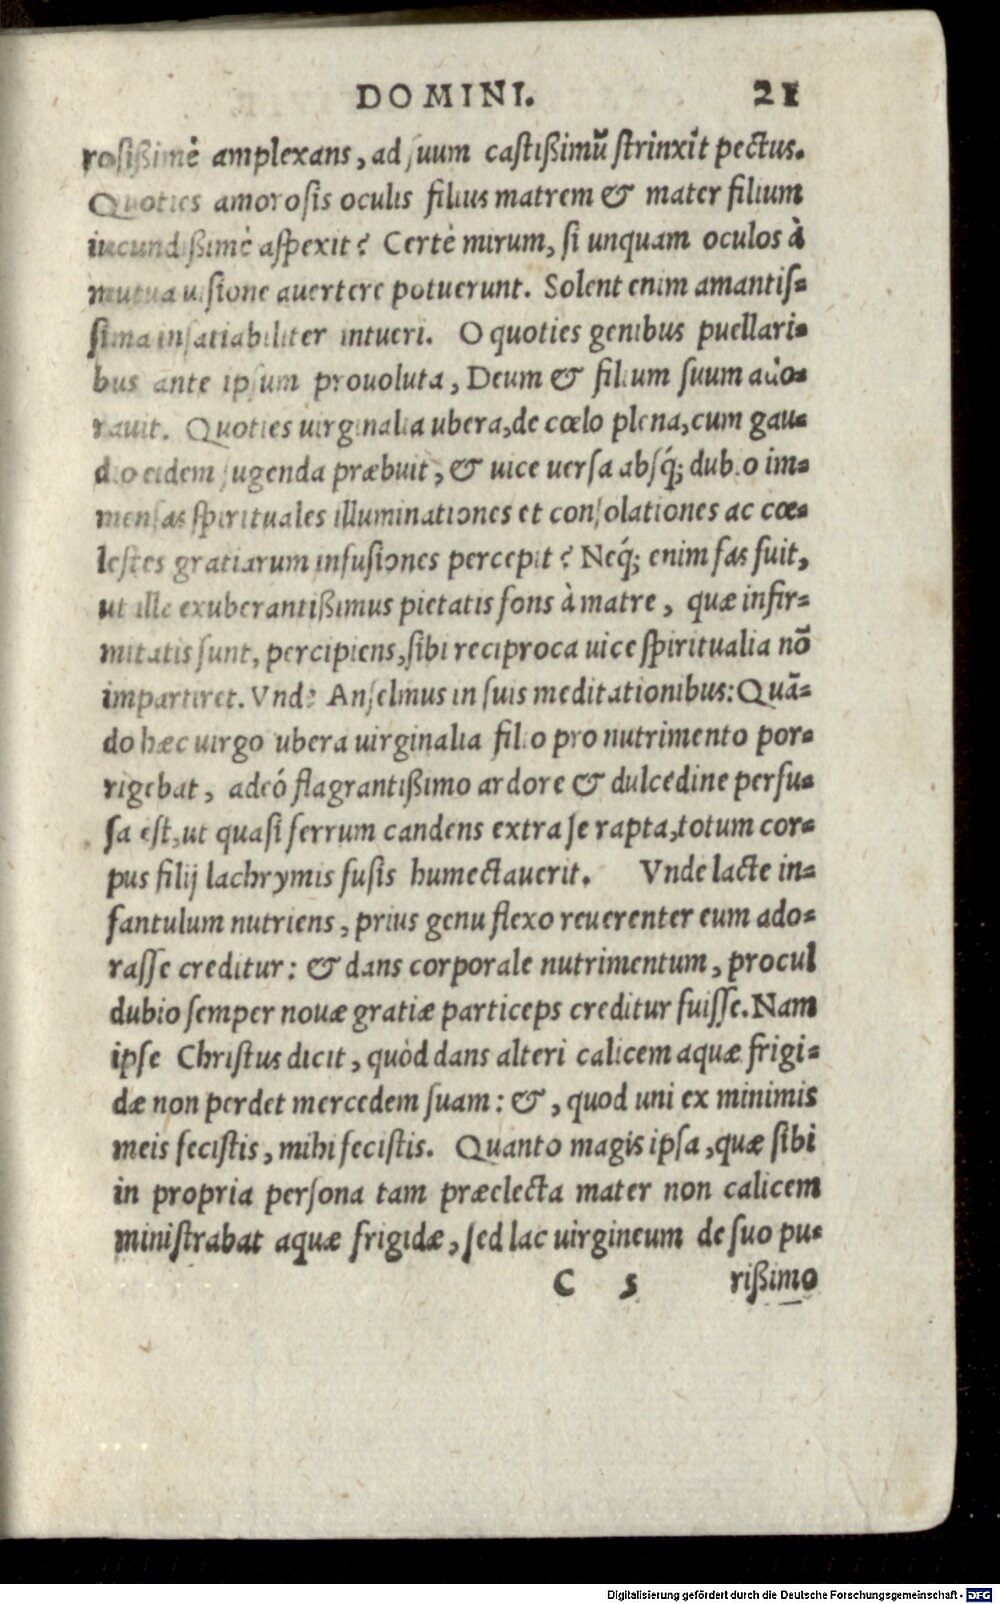 DOMINI. 21
rosißimè amplexans, ad suum castißimũ strinxit pectus.
Quoties amorosis oculis filius matrem & mater filium
iucundißimè aspexit? Certè mirum, si unquam oculos à
mutua uisione auertere potuerunt. Solent enim amantis-
sima insatiabiliter intueri. O quoties genibus puellari-
bus ante ipsum prouoluta, Deum & filium suum ado-
rauit. Quoties uirginalia ubera, de cœlo plena, cum gau-
dio eidem sugenda præbuit, & uice uersa absq́; dubio im-
mensas spirituales illuminationes et consolationes ac cœ-
lestes gratiarum infusiones percepit? Neq́; enim fas fuit,
ut ille exuberantißimus pietatis fons à matre, quæ infir-
mitatis sunt, percipiens, sibi reciproca uice spiritualia nõ
impartiret. Vnde Anselmus in suis meditationibus: Quã-
do hæc uirgo ubera uirginalia filio pro nutrimento por-
rigebat, adeó flagrantißimo ardore & dulcedine perfu-
sa est, ut quasi ferrum candens extra se rapta, totum cor-
pus filij lachrymis fusis humectauerit. Vnde lacte in-
fantulum nutriens, prius genu flexo reuerenter eum ado-
rasse creditur: & dans corporale nutrimentum, procul
dubio semper nouæ gratiæ particeps creditur fuisse. Nam
ipse Christus dicit, quòd dans alteri calicem aquæ frigi-
dæ non perdet mercedem suam: &, quod uni ex minimis
meis fecistis, mihi fecistis. Quanto magis ipsa, quæ sibi
in propria persona tam præelecta mater non calicem
ministrabat aquæ frigidæ, sed lac uirgineum de suo pu-
C 5 rißimo
Digitalisierung gefördert durch die Deutsche Forschungsgemeinschaft - DFG